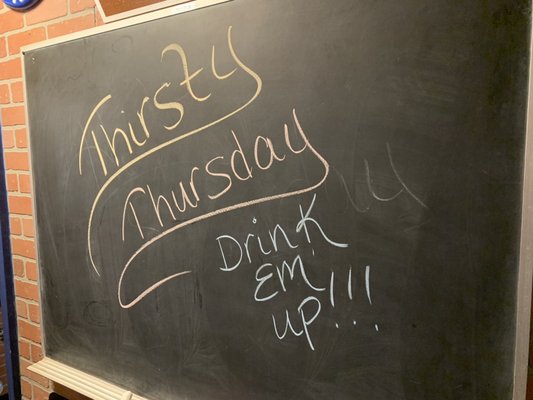 Thirsty
Thursday
Drink
Em
up!!!